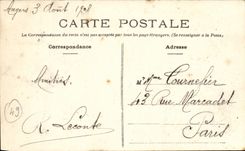 Angers 3 Août 1908
CARTE POSTALE
La Correspondance au recto n'est pas acceptée par tous les pays étrangers. (Se renseigner à la Poste)
Correspondance
Adresse
Amitiés
R. Leconte
Mme Tournefier
43 Rue Marcadet
Paris
49